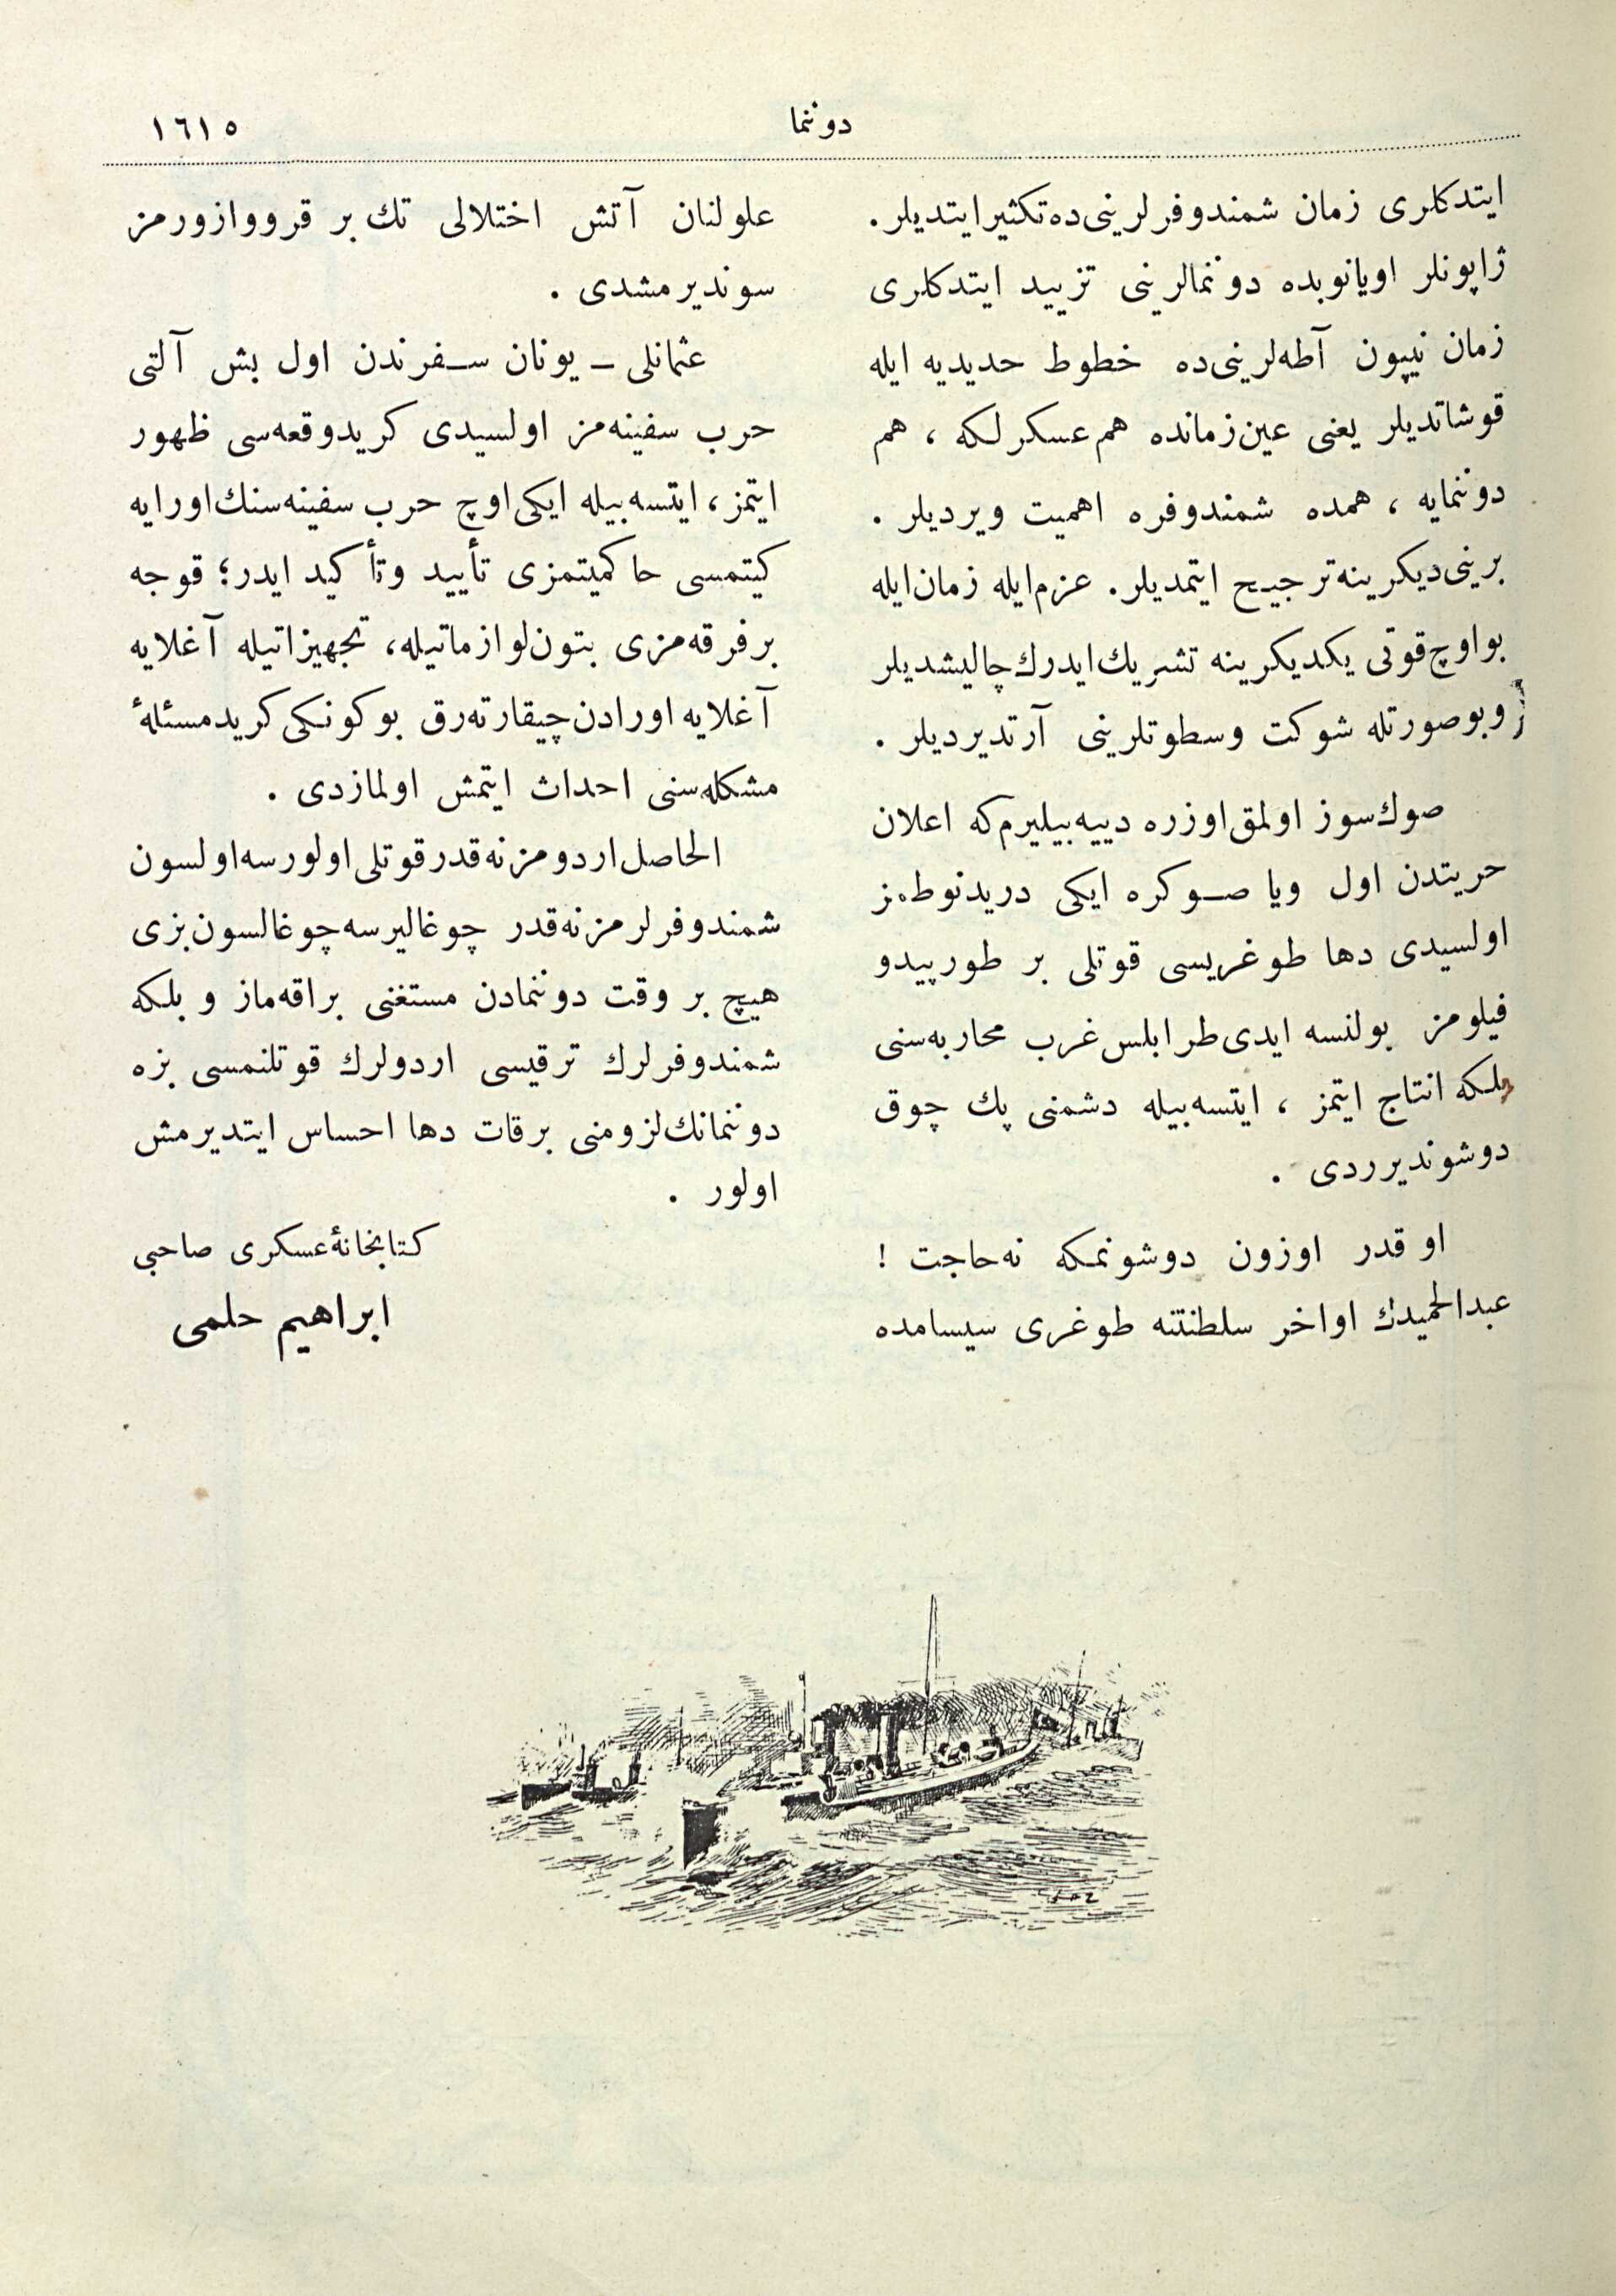 دوننما
١٦١٥
ايتدكلرى زمان شمندوفرلرينى‌ده تكثير ايتديلر.
ژاپونلر اويانوبده دوننمالرينى تزييد ايتدكلرى
زمان نيپون آطه‌لرينى‌ده خطوط حديديه ايله
قوشاتديلر يعنى عين زمانده هم عسكرلكه ، هم
دوننمايه ، همده شمندوفره اهميت ويرديلر .
برينى ديكرينه ترجيح ايتمديلر. عزم ايله زمان ايله
بو اوچ قوتى يكديكرينه تشريك ايدرك چاليشديلر
وبوصورتله شوكت وسطوتلرينى آرتديرديلر .
صوك سوز اولمق اوزره دييه بيليرم كه اعلان
حريتدن اول ويا صوكره ايكى دريدنوطمز
اولسيدى دها طوغريسى قوتلى بر طورپيدو
فيلومز بولنسه ايدى طرابلس غرب محاربه‌سنى
بلكه انتاج ايتمز ، ايتسه بيله دشمنى پك چوق
دوشونديرردى .
او قدر اوزون دوشونمكه نه حاجت !
عبدالحميدك اواخر سلطنتنه طوغرى سيسامده
علولنان آتش اختلالى تك بر قرووازورمز
سونديرمشدى .
عثمانلى ـ يونان سفرندن اول بش آلتى
حرب سفينه‌مز اولسيدى كريد وقعه‌سى ظهور
ايتمز ، ايتسه بيله ايكى اوچ حرب سفينه‌سنك اورايه
كيتمسى حاكميتمزى تأييد وتأكيد ايدر؛ قوجه
بر فرقه‌مزى بتون لوازماتيله، تجهيزاتيله آغلايه
آغلايه اورادن چيقارته‌رق بوكونكى كريد مسئلهٔ
مشكله‌سنى احداث ايتمش اولمازدى .
الحاصل اردومز نه قدر قوتلى اولورسه اولسون
شمندوفرلرمز نه قدر چوغاليرسه چوغالسون بزى
هيچ بر وقت دوننمادن مستغنى براقه‌ماز و بلكه
شمندوفرلرك ترقيسى اردولرك قوتلنمسى بزه
دوننمانك لزومنى برقات دها احساس ايتديرمش
اولور .
كتابخانهٔ عسكرى صاحبى
ابراهيم حلمى